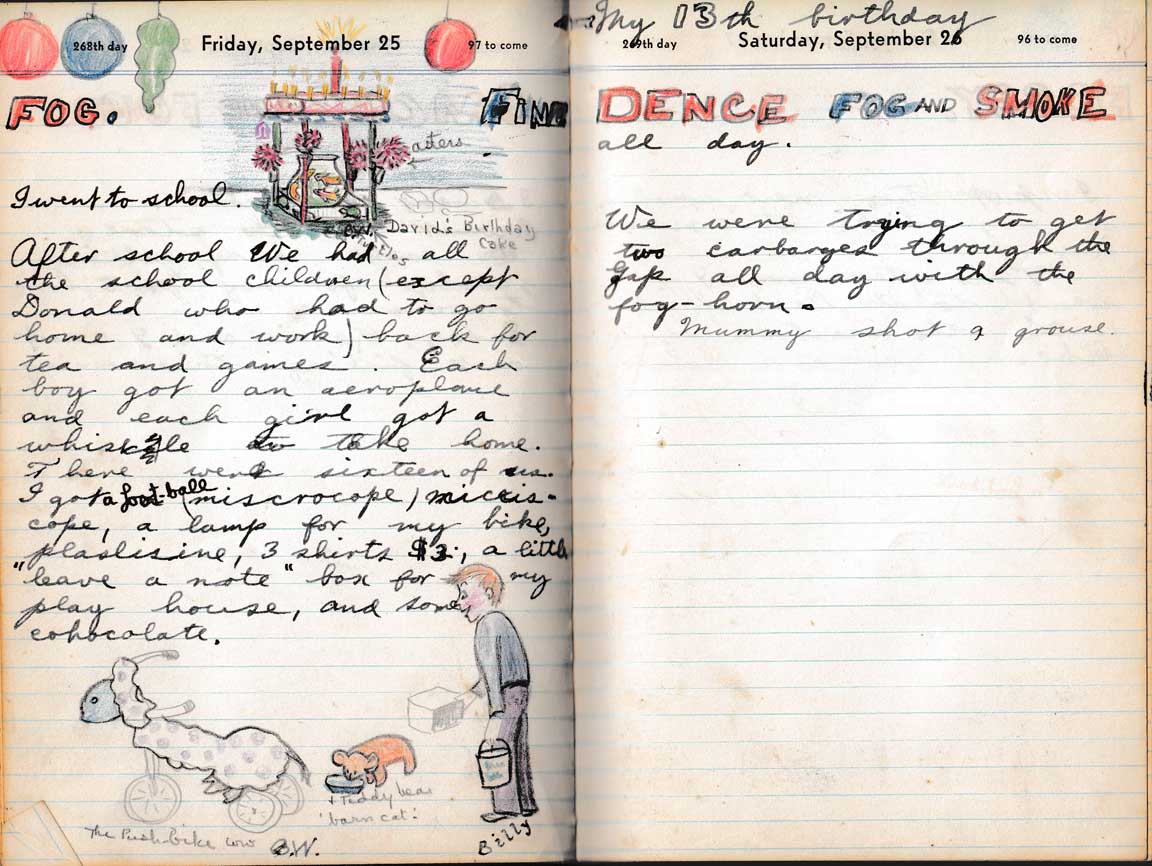 268th day Friday, September 25 97 to come
FOG. FINE
asters
I went to school.
David's Birthday
Cake
After school We had all
the school children (except
Donald who had to go
home and work) back for
tea and games. Each
boy got an aeroplane
and each girl got a
to take home.
There were sixteen of us.
I got a foot-ball (miscrocope)
cope, a lamp for my bike,
plastisine, 3 shirts $3., a little
"leave a note" box for my
play house, and some
cohocolate.
Teddy bear
'barn cat'.
The Push-bike cow B.W.
Billy
My 13th birthday
269th day Saturday, September 26 96 to come
DENCE FOG AND SMOKE
all day.
We were trying to get
two carbarges through the
Gap all day with the
fog-horn.
Mummy shot a grouse.